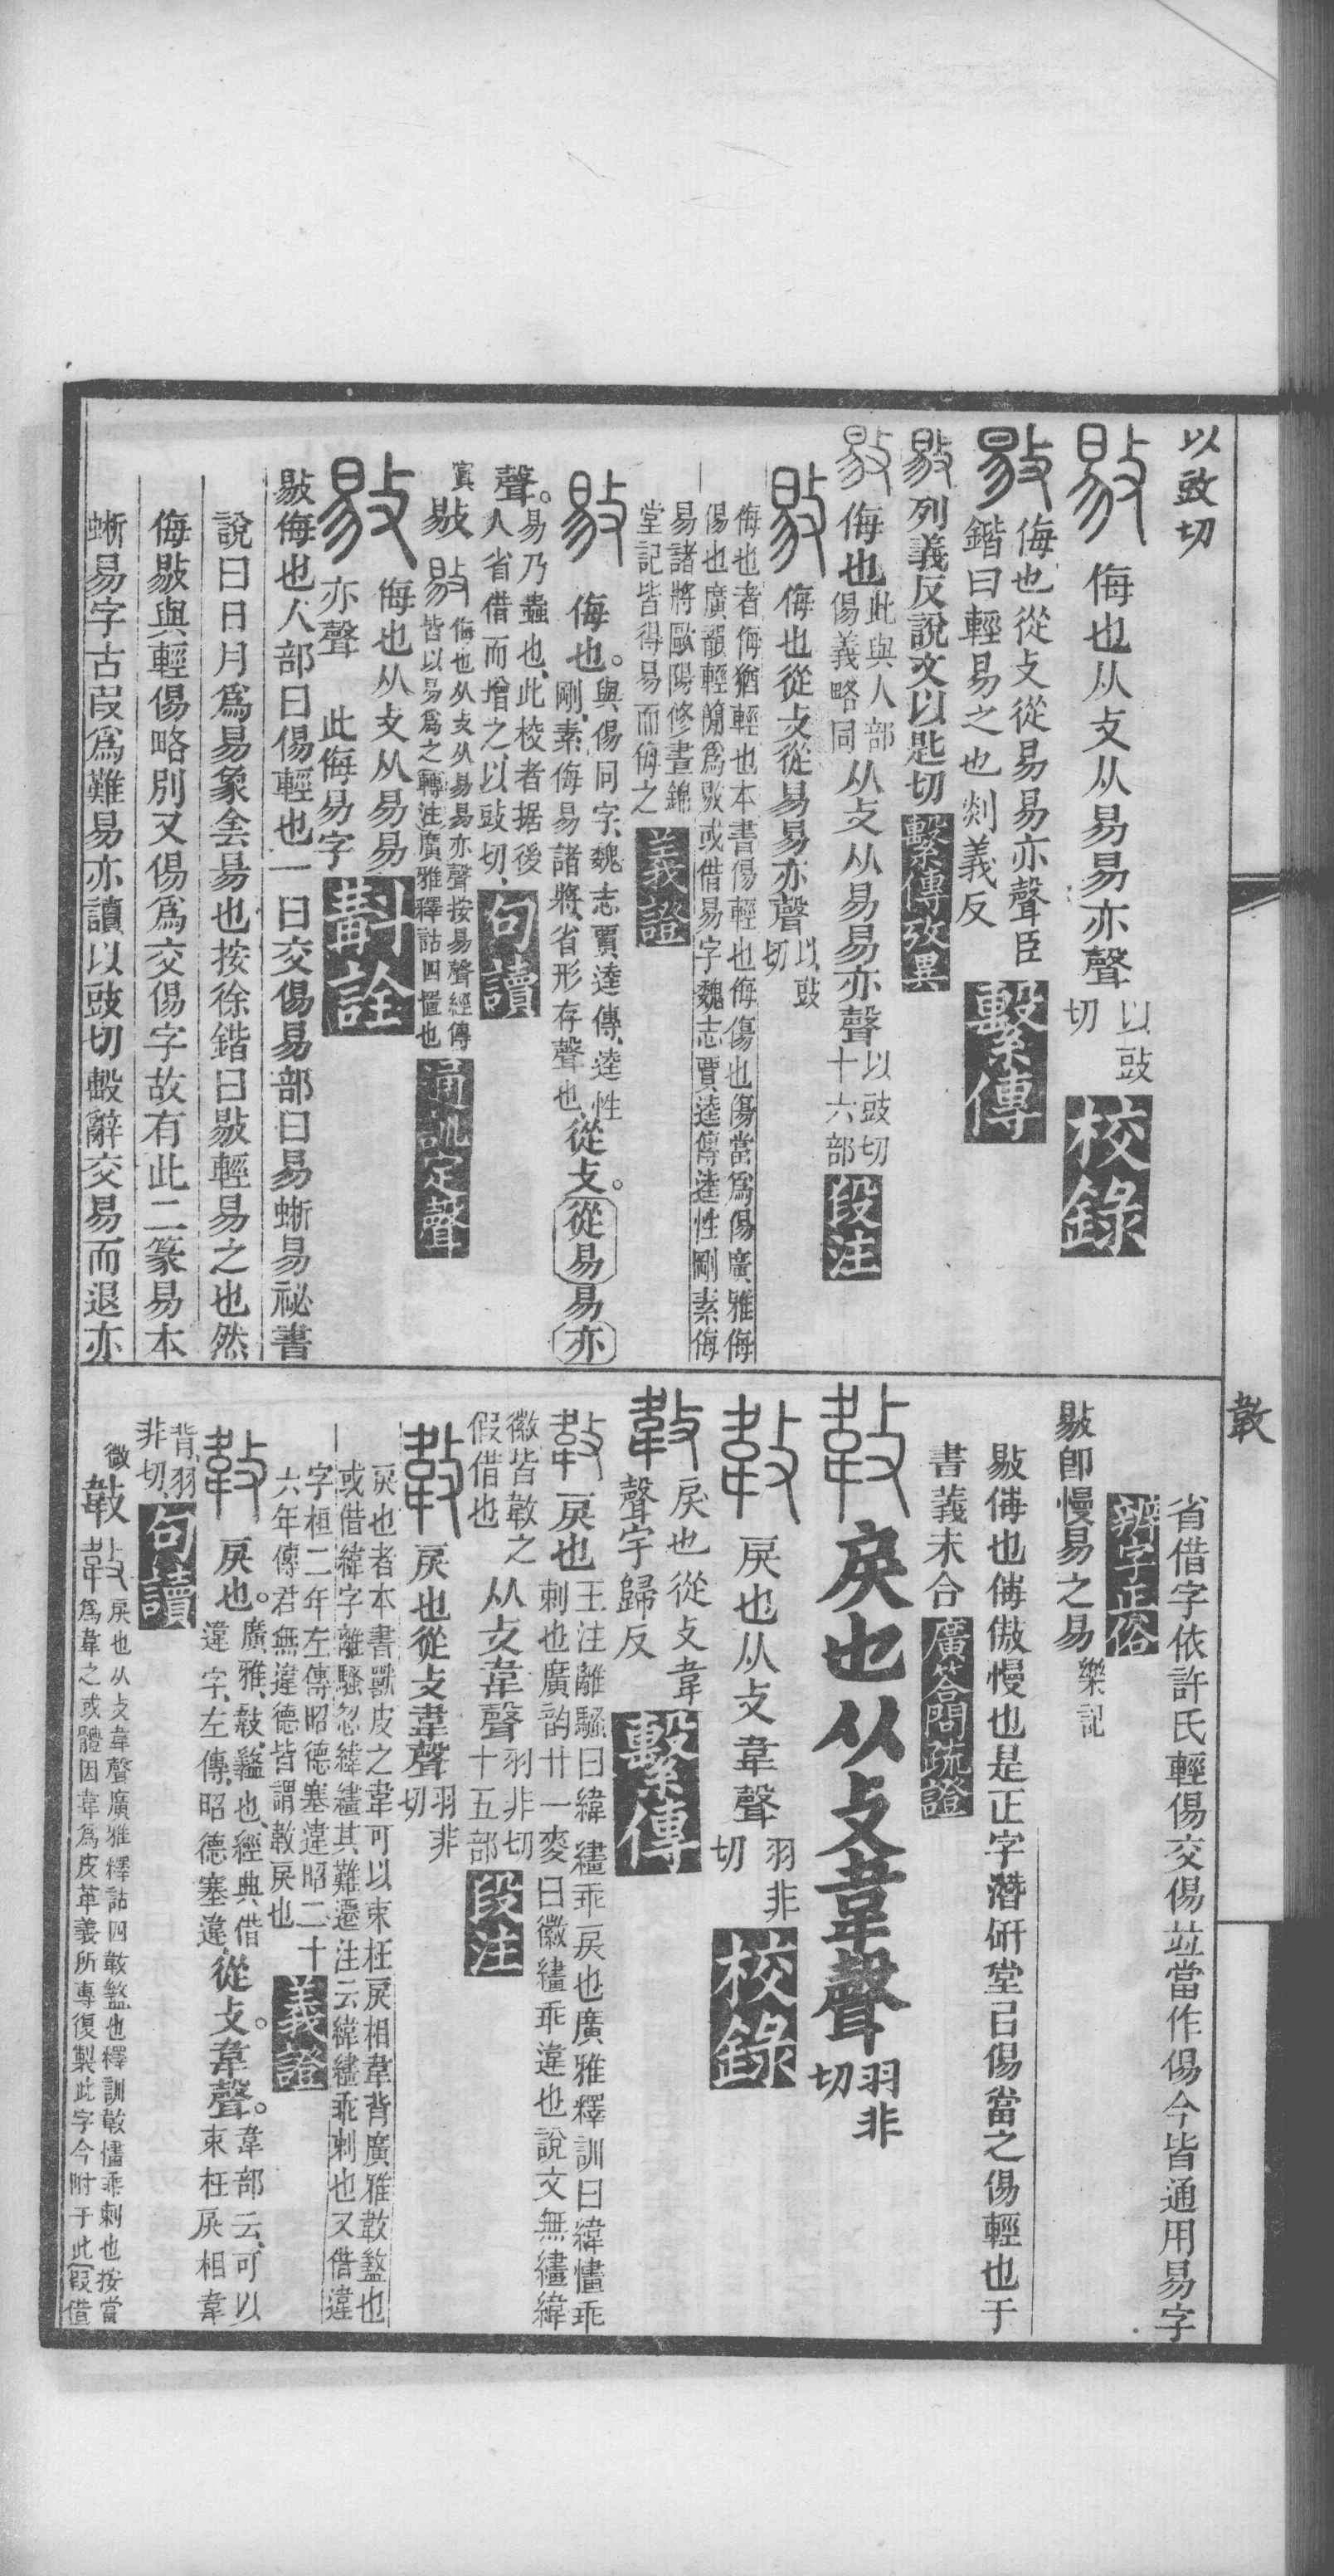 以豉切
侮也从攴从易易亦聲以豉切校錄
侮也從攴從易易亦聲臣
鍇曰輕易之也剡義反繫傳
列義反說文以匙切繫傳攷異
侮也此與人部傷義略同从攴从易易亦聲以豉切十六部段注
侮也從攴從易易亦聲以豉切
侮也者侮猶輕也本書傷輕也侮傷也傷當爲傷廣雅侮
傷也廣韻輕簡爲敡或借易字魏志賈逵傳逵性剛素侮
易諸將歐陽修晝錦
堂記皆得易而侮之義證
侮也。與傷同字、魏志賈逵傳、逵性
剛、素侮易諸將、省形存聲也、從攴。從易易亦
聲。易乃蟲也、此校者据後
人省借而增之、以豉切、句讀
寘敡侮也从攴从易易亦聲按易聲經傳
皆以易爲之轉注廣雅釋詁四傷也通訓定聲
侮也从攴从易易
亦聲 此侮易字斠詮
敡侮也人部曰傷輕也一曰交傷易部曰易蜥易祕書
說曰日月爲易象侌易也按徐鍇曰敡輕易之也然
侮敡與輕傷略別又傷爲交傷字故有此二篆易本
蜥易字古叚爲難易亦讀以豉切毄辭交易而退亦
敡
省借字依許氏輕傷交傷竝當作傷今皆通用易字
辨字正俗
敡卽慢易之易樂記
敡侮也侮傲慢也是正字潛研堂曰傷當之傷輕也于
書義未合廣答問疏證
戾也从攴韋聲羽非切
戾也从攴韋聲羽非切校錄
戾也從攴韋
聲宇歸反繫傳
戾也王注離騷曰緯繣乖戾也廣雅釋訓曰緯㦎乖
剌也廣韵廿一麥曰徽繣乖違也說文無繣緯
徽皆敼之
假借也从攴韋聲羽非切十五部段注
戾也從攴韋聲羽非切
戾也者本書獸皮之韋可以束枉戾相韋背廣雅敼盭也
或借緯字離騷忽緯繣其難遷注云緯繣乖剌也又借違
字桓二年左傳昭德塞違昭二十
六年傳君無違德皆謂敼戾也義證
戾也。廣雅、敼、盭也、經典借
違字、左傳、昭德塞違、從攴。韋聲。韋部云、可以
束枉戾相韋
背、羽
非切、句讀
微敼戾也从攴韋聲廣雅釋詁四敼盭也釋訓敼㦎乖剌也按當
爲韋之或體因韋爲皮革義所專復製此字今附于此假借